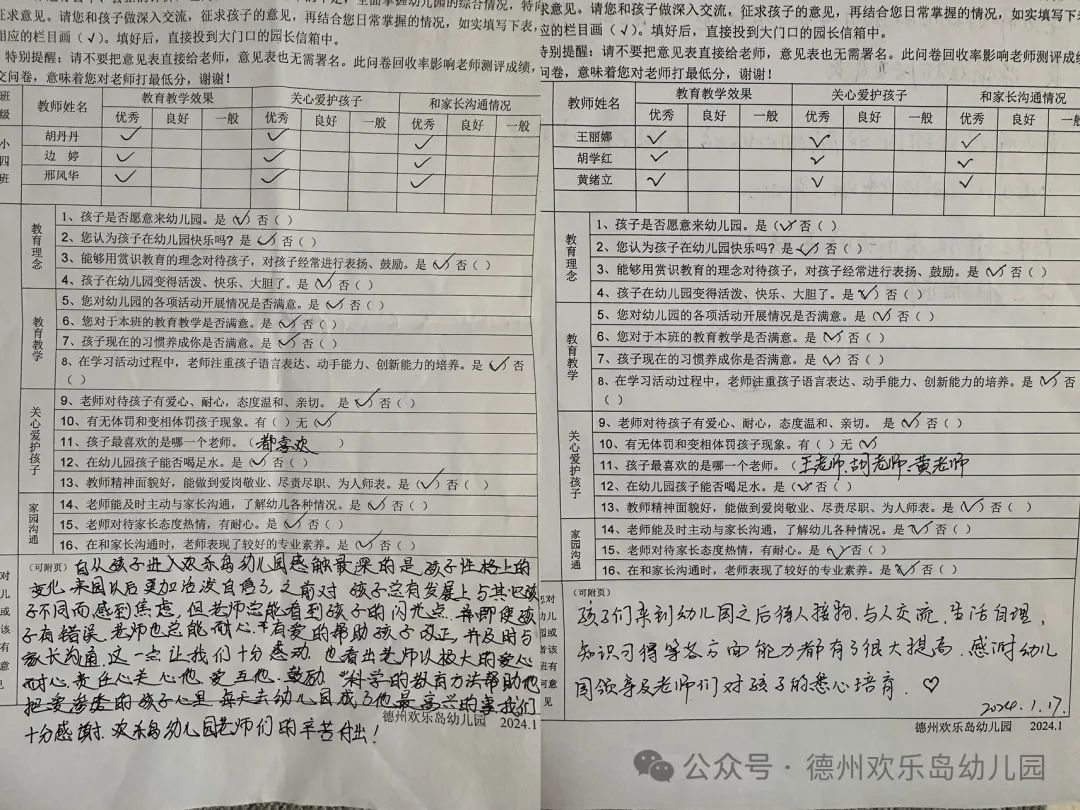 征求意见。请您和孩子做深入交流，征求孩子的意见，再结合您日常掌握的情况，如实填写下表，
相应的栏目画（√）。填好后，直接投到大门口的园长信箱中。
特别提醒：请不要把意见表直接给老师，意见表也无需署名。此问卷回收率影响老师测评成绩，
交问卷，意味着您对老师打最低分，谢谢！
班级 教师姓名 教育教学效果 关心爱护孩子 和家长沟通情况
优秀 良好 一般 优秀 良好 一般 优秀 良好 一般
小四班
胡丹丹 ✓ ✓ ✓
边 婷 ✓ ✓ ✓
邢风华 ✓ ✓ ✓
教育理念
1、孩子是否愿意来幼儿园。是（✓）否（ ）
2、您认为孩子在幼儿园快乐吗？是（✓）否（ ）
3、能够用赏识教育的理念对待孩子，对孩子经常进行表扬、鼓励。是（✓）否（ ）
4、孩子在幼儿园变得活泼、快乐、大胆了。是（✓）否（ ）
教育教学
5、您对幼儿园的各项活动开展情况是否满意。是（✓）否（ ）
6、您对于本班的教育教学是否满意。是（✓）否（ ）
7、孩子现在的习惯养成你是否满意。是（✓）否（ ）
8、在学习活动过程中，老师注重孩子语言表达、动手能力、创新能力的培养。是（✓）否
（ ）
关心爱护孩子
9、老师对待孩子有爱心、耐心，态度温和、亲切。 是（✓）否（ ）
10、有无体罚和变相体罚孩子现象。有（ ）无（✓）
11、孩子最喜欢的是哪一个老师。（都喜欢 ）
12、在幼儿园孩子能否喝足水。是（✓）否（ ）
13、教师精神面貌好，能做到爱岗敬业、尽责尽职、为人师表。是（✓）否（ ）
家园沟通
14、老师能及时主动与家长沟通，了解幼儿各种情况。是（✓）否（ ）
15、老师对待家长态度热情，有耐心。是（✓）否（ ）
16、在和家长沟通时，老师表现了较好的专业素养。是（✓）否（ ）
（可附页）自从孩子进入欢乐岛幼儿园感触最深的是孩子性格上的
变化，来园以后更加活泼自信了，之前对孩子总有发展上与其它孩
子不同而感到焦虑，但老师总能看到孩子的闪光点，并即使孩
子有错误，老师也总能耐心有爱的帮助孩子改正，并及时与
家长沟通，这一点让我们十分感动，也看出老师以极大的爱心
耐心、责任心关心他，爱互他，鼓励 科学的教育方法帮助他
把爱 的孩子心里 每天去幼儿园成了他最高兴的事我们
十分感谢，欢乐岛幼儿园老师们的辛苦付出！
德州欢乐岛幼儿园 2024.1
求意见。请您和孩子做深入交流，征求孩子的意见，再结合您日常掌握的情况，如实填写下
应的栏目画（√）。填好后，直接投到大门口的园长信箱中。
特别提醒：请不要把意见表直接给老师，意见表也无需署名。此问卷回收率影响老师测评成绩，
问卷，意味着您对老师打最低分，谢谢！
教师姓名 教育教学效果 关心爱护孩子 和家长沟通情况
优秀 良好 一般 优秀 良好 一般 优秀 良好 一般
王丽娜 ✓ ✓ ✓
胡学红 ✓ ✓ ✓
黄绪立 ✓ ✓ ✓
教育理念
1、孩子是否愿意来幼儿园。是（✓）否（ ）
2、您认为孩子在幼儿园快乐吗？是（✓）否（ ）
3、能够用赏识教育的理念对待孩子，对孩子经常进行表扬、鼓励。是（✓）否（ ）
4、孩子在幼儿园变得活泼、快乐、大胆了。是（✓）否（ ）
教育教学
5、您对幼儿园的各项活动开展情况是否满意。是（✓）否（ ）
6、您对于本班的教育教学是否满意。是（✓）否（ ）
7、孩子现在的习惯养成你是否满意。是（✓）否（ ）
8、在学习活动过程中，老师注重孩子语言表达、动手能力、创新能力的培养。是（✓）否
（ ）
关心爱护孩子
9、老师对待孩子有爱心、耐心，态度温和、亲切。 是（✓）否（ ）
10、有无体罚和变相体罚孩子现象。有（ ）无（✓）
11、孩子最喜欢的是哪一个老师。（王老师，胡老师，黄老师
12、在幼儿园孩子能否喝足水。是（✓）否（ ）
13、教师精神面貌好，能做到爱岗敬业、尽责尽职、为人师表。是（✓）否（ ）
家园沟通
14、老师能及时主动与家长沟通，了解幼儿各种情况。是（✓）否（ ）
15、老师对待家长态度热情，有耐心。是（✓）否（ ）
16、在和家长沟通时，老师表现了较好的专业素养。是（✓）否（ ）
（可附页）
孩子们来到幼儿园之后待人接物，与人交流，生活自理，
知识习得等各方面能力都有了很大提高，感谢幼儿
园领导及老师们对孩子的悉心培育。♡
2024.1.17.
德州欢乐岛幼儿园 2024.1
公众号·德州欢乐岛幼儿园